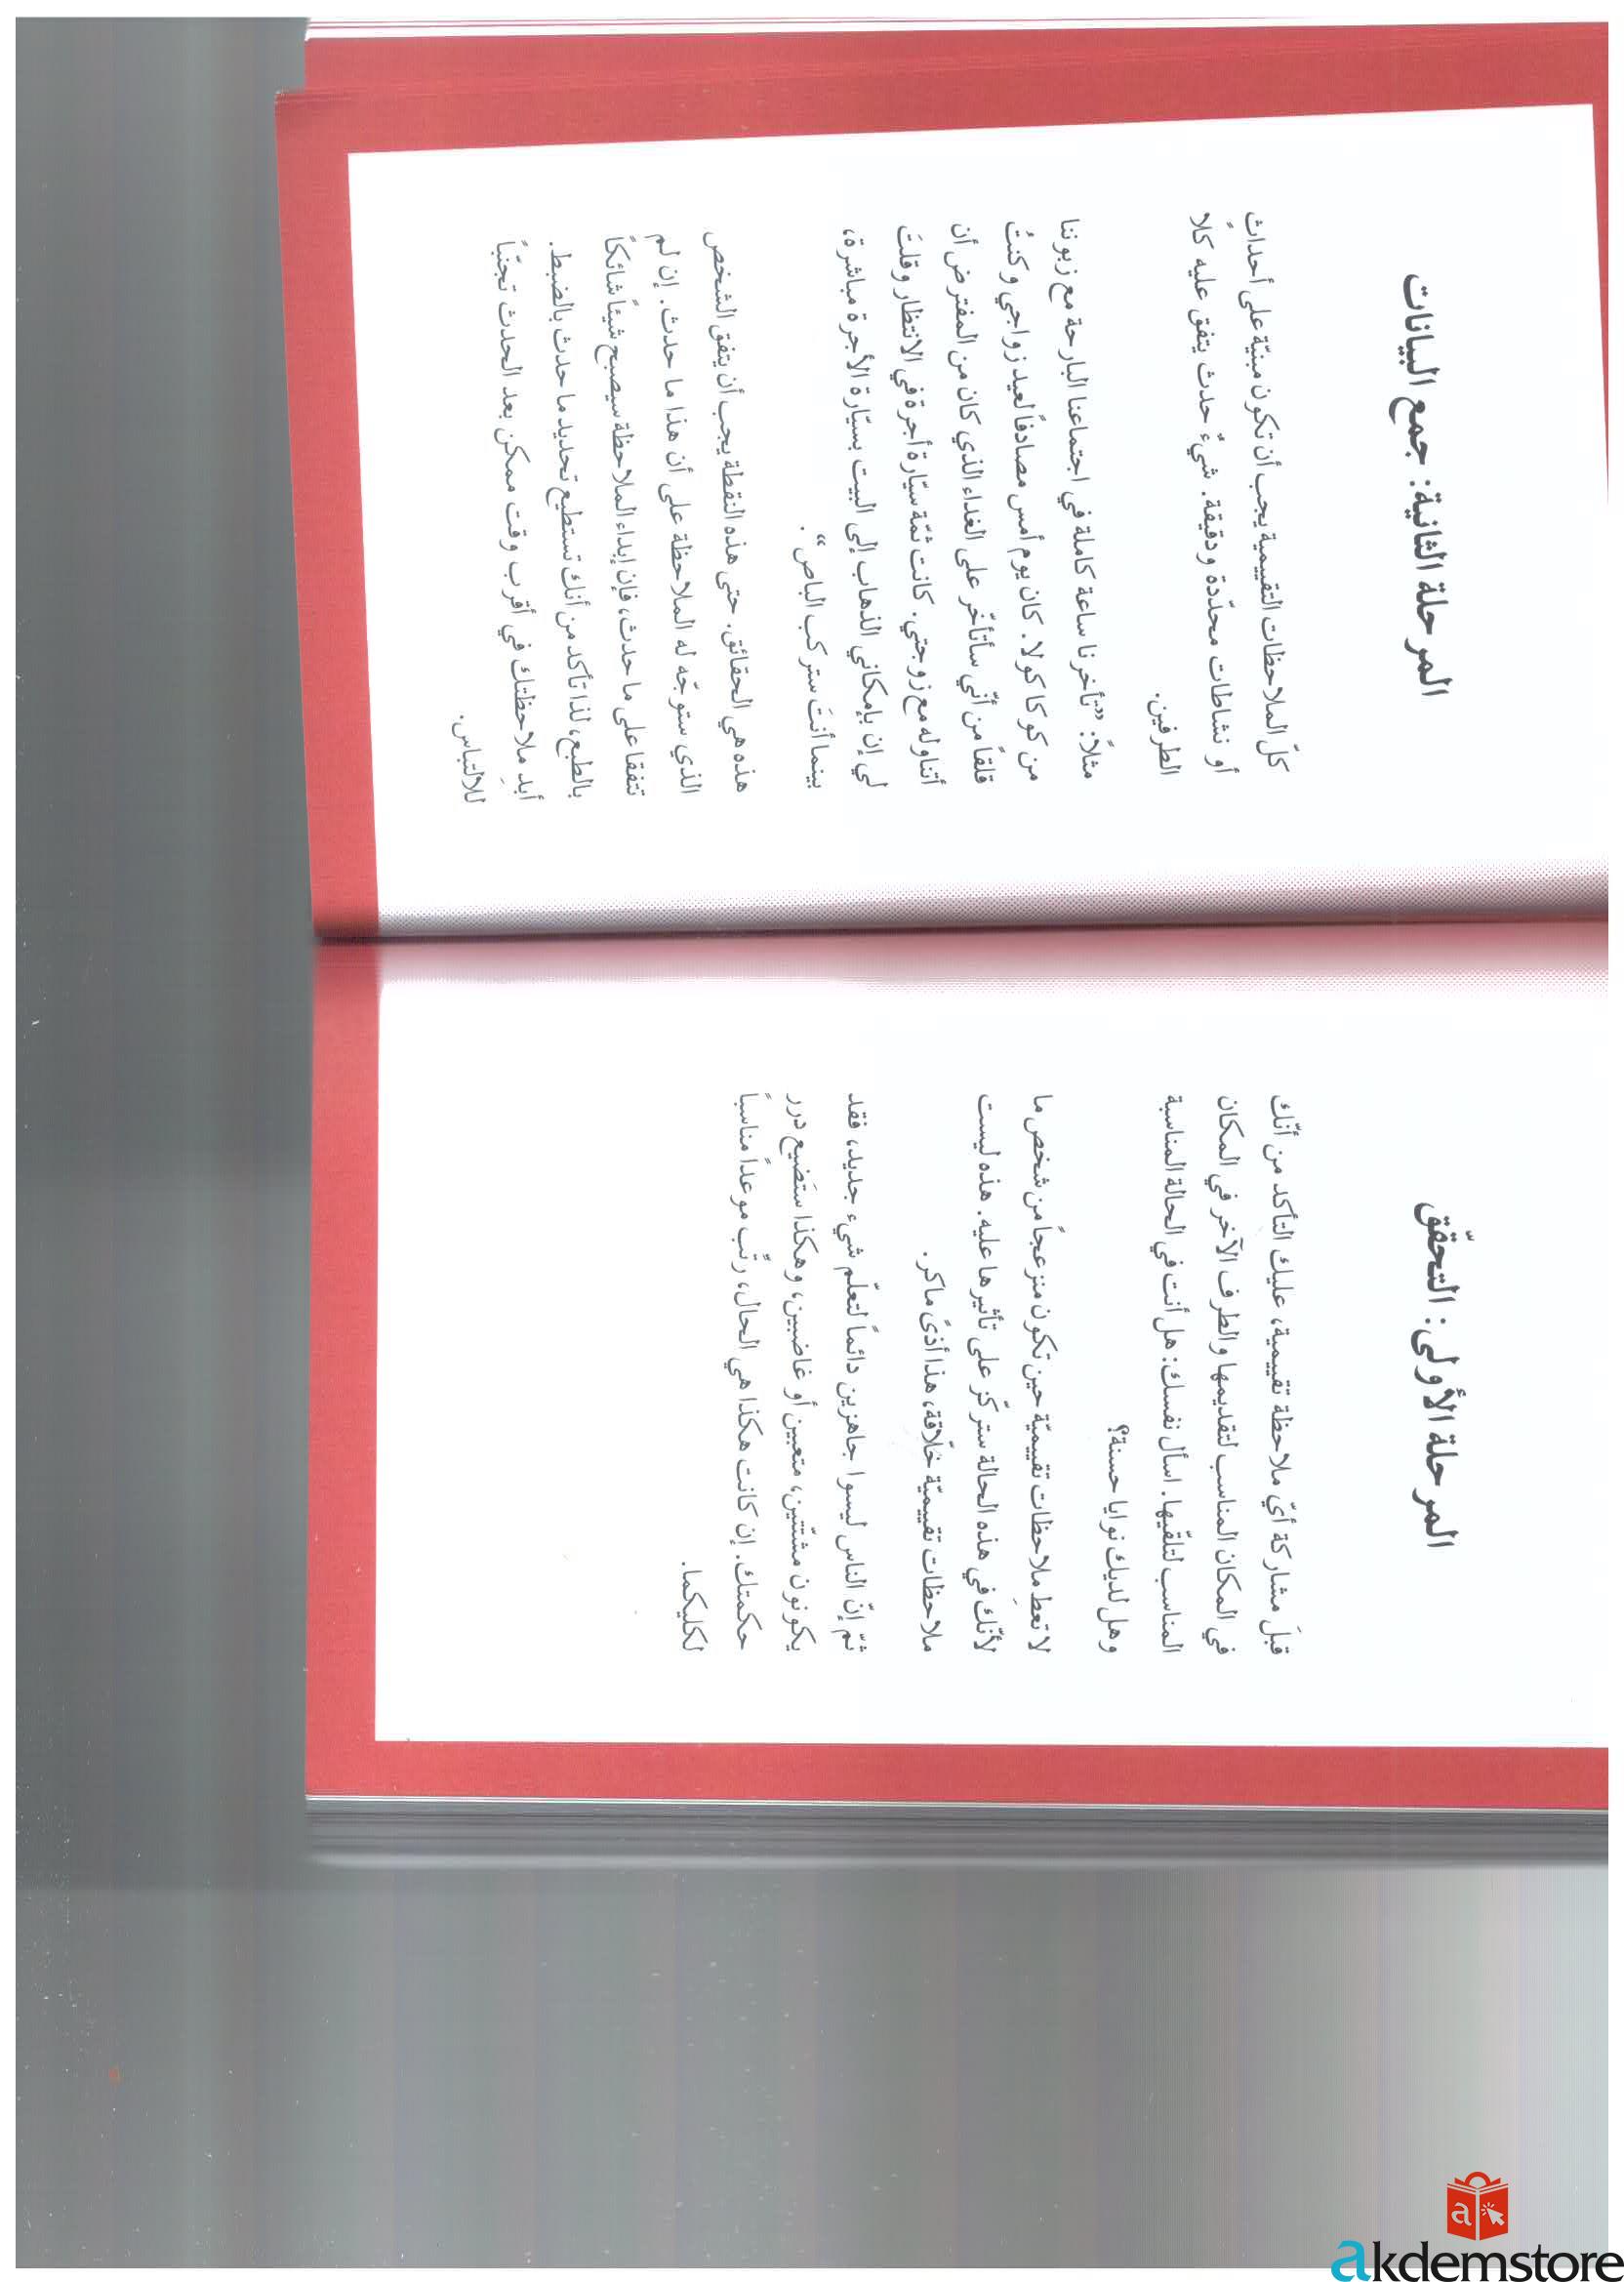 المرحلة الأولى: التحقّق
قبلَ مشاركة أيّ ملاحظة تقييمية، عليك التأكد من أنّك
في المكان المناسب لتقديمها والطرف الآخر في المكان
المناسب لتلقّيها. اسأل نفسك: هل أنت في الحالة المناسبة
وهل لديك نوايا حسنة؟
لا تعطِ ملاحظات تقييميّة حين تكون منزعجاً من شخص ما
لأنّك في هذه الحالة ستركّز على تأثيرها عليه. هذه ليست
ملاحظات تقييميّة خلّاقة، هذا أذىً ماكر.
ثمّ إنّ الناس ليسوا جاهزين دائماً لتعلّم شيء جديد، فقد
يكونون مشتّتين، متعبين أو غاضبين، وهكذا ستَضيع درر
حكمتك. إن كانت هكذا هي الحال، رتّب موعداً مناسباً
لكليكما.
المرحلة الثانية: جمع البيانات
كلّ الملاحظات التقييمية يجب أن تكون مبنيّة على أحداث
أو نشاطات محدّدة ودقيقة. شيءٌ حدث يتفق عليه كلا
الطرفين.
مثلاً: ”تأخرنا ساعة كاملة في اجتماعنا البارحة مع زبوننا
من كوكا كولا. كان يوم أمس مصادفاً لعيد زواجي وكنتُ
قلقاً من أنّي سأتأخّر على الغداء الذي كان من المفترض أن
أتناوله مع زوجتي. كانت ثمّة سيّارة أجرة في الانتظار وقلتَ
لي إن بإمكاني الذهاب إلى البيت بسيّارة الأجرة مباشرة،
بينما أنتَ ستركب الباص“.
هذه هي الحقائق. حتى هذه النقطة يجب أن يتفق الشخص
الذي ستوجّه له الملاحظة على أن هذا ما حدث. إن لم
تتفقا على ما حدث، فإن إبداء الملاحظة سيصبح شيئاً شائكاً
بالطبع، لذا تأكد من أنك تستطيع تحديد ما حدث بالضبط.
أبدِ ملاحظتك في أقرب وقت ممكن بعد الحدث تجنّباً
للالتباس.
akdemstore